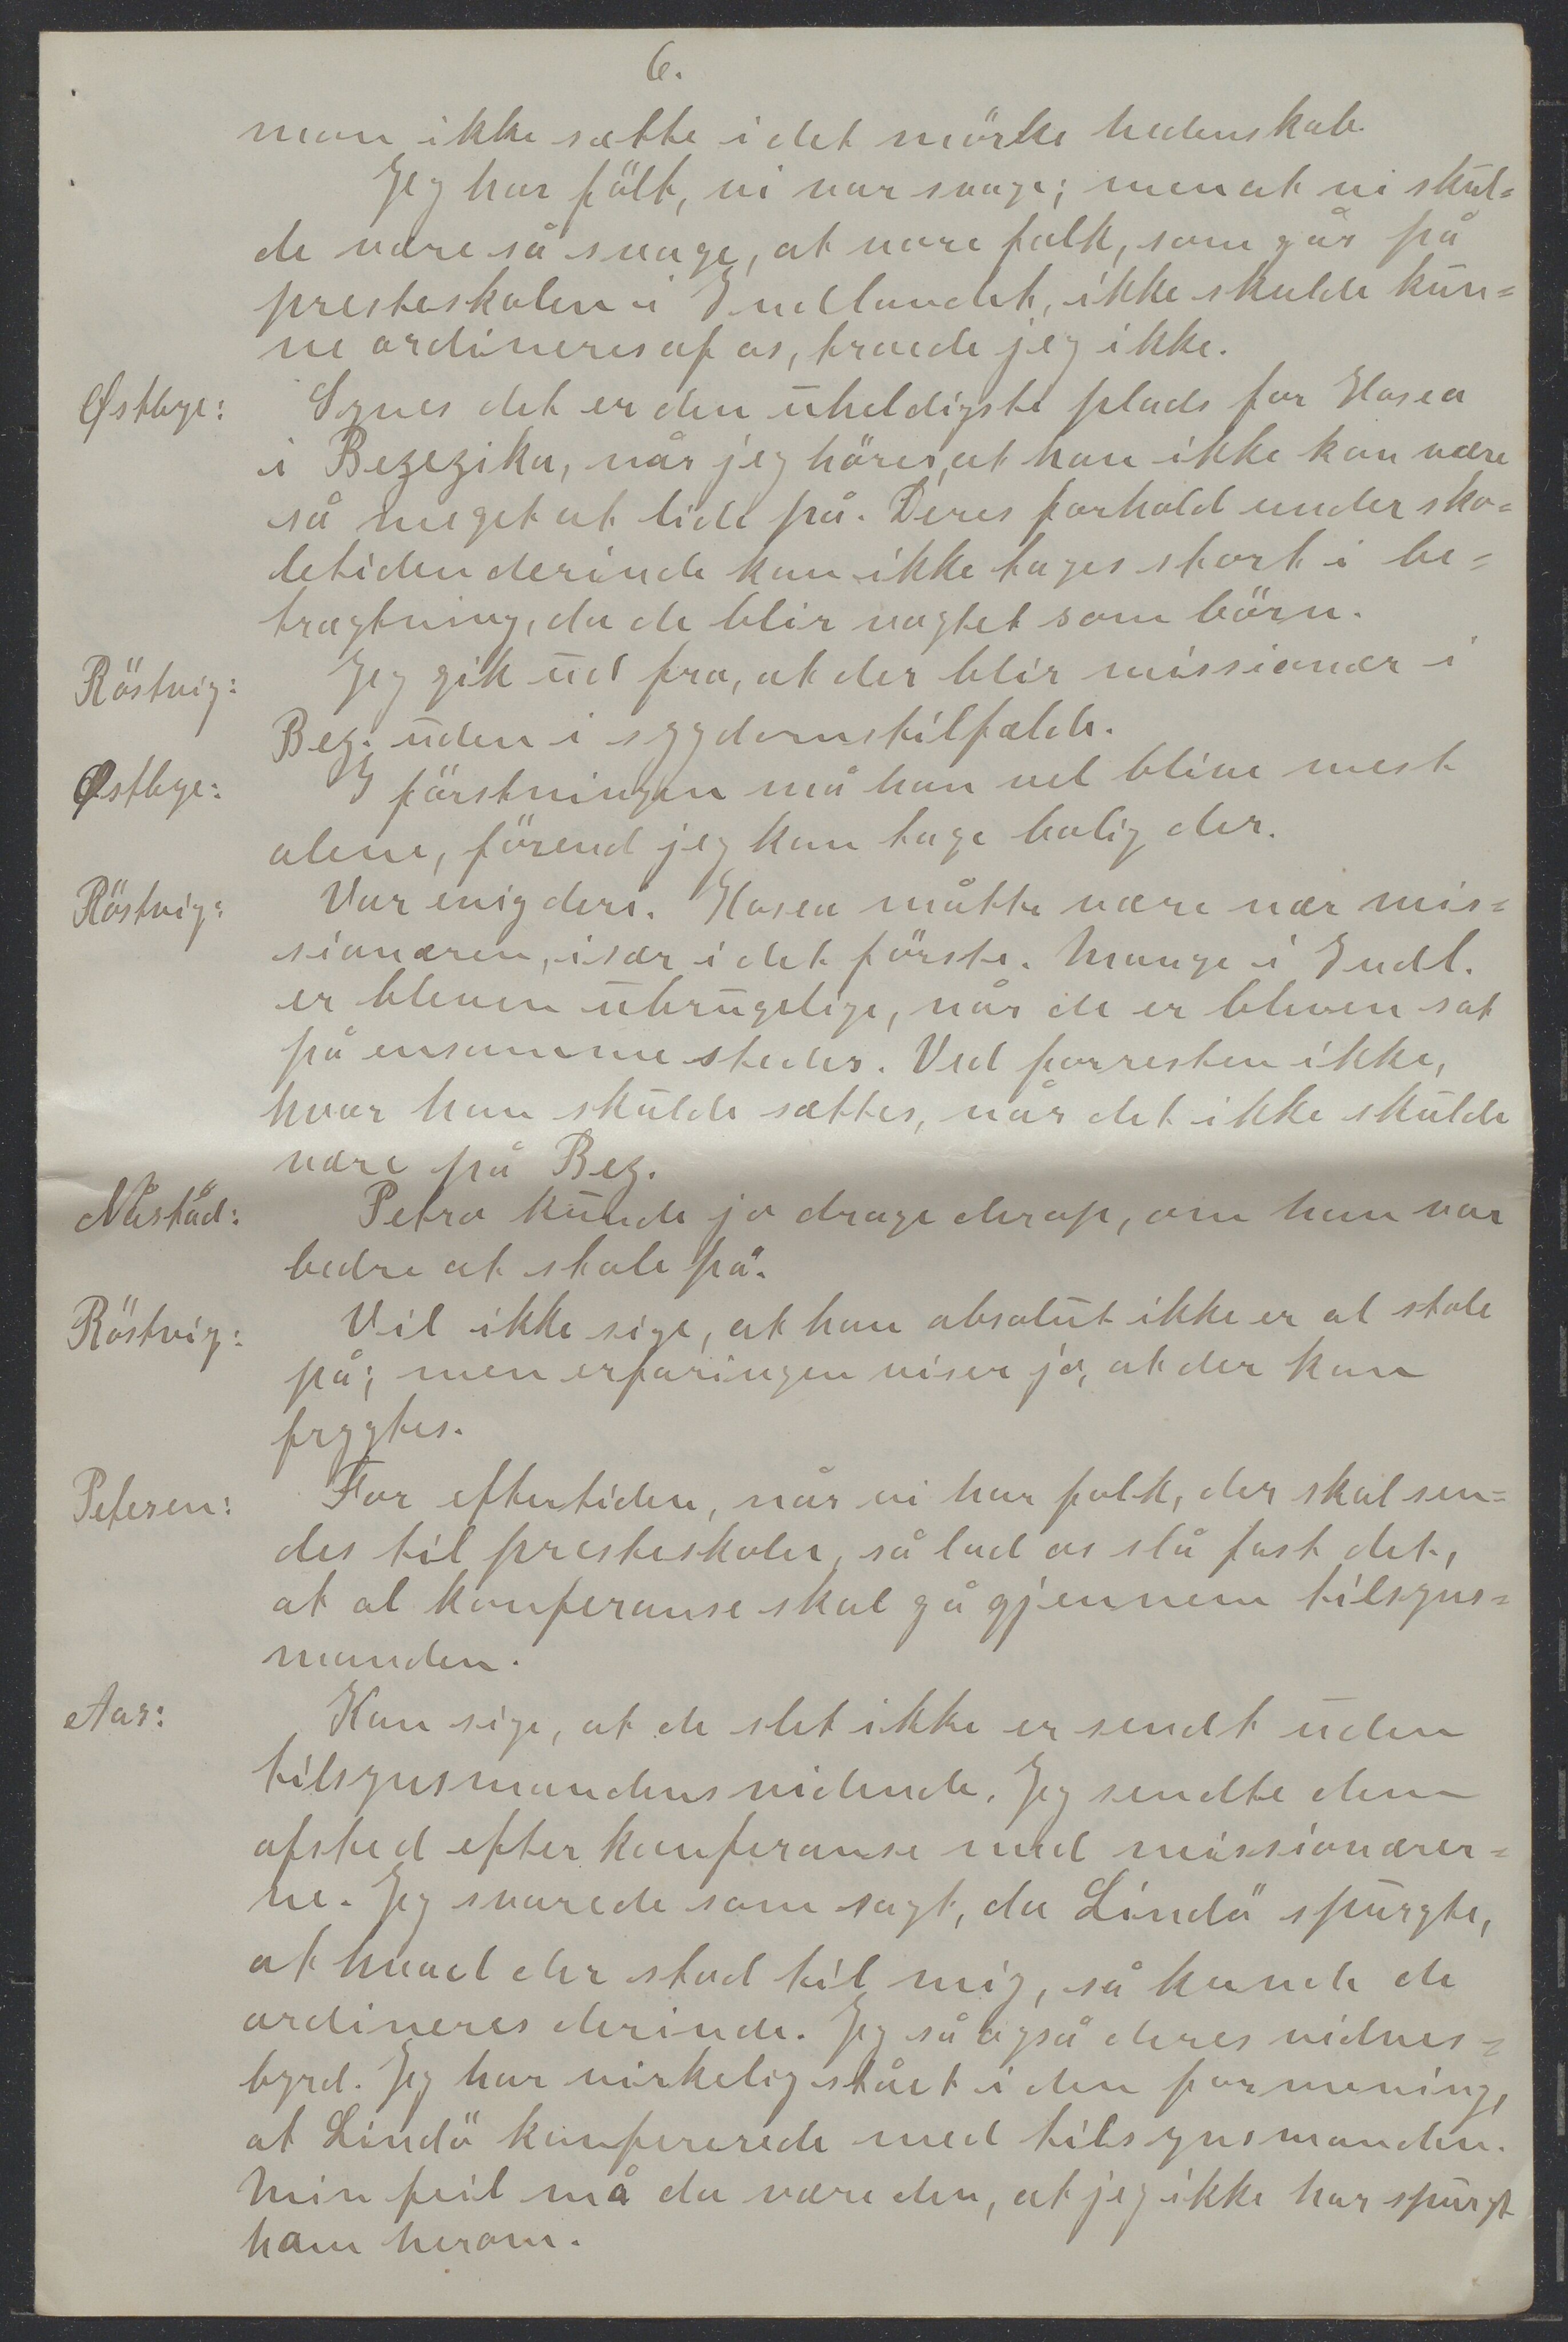 6.
man ikke sætte i det mörke hedenskab.
Jeg har fölt, vi var svage; men at vi skul=
de være så svage, at vore folk, som går på
presteskolen i Indlandet, ikke skulde kun=
ne ordineres af os, troede jeg ikke.
Østbye: Synes det er den uheldigste plads for Hosea
i Bezezika, når jeg hörer, at han ikke kan være
så meget at lide på. Deres forhold under sko=
letiden derinde kan ikke tages stort i be=
tragtning, da de blir vogtet som börn.
Röstvig: Jeg gik ud fra, at der blir missionær i
Bez. uden i sygdomstilfælde.
Østbye: I förstningen må han vel blive mest
alene, förend jeg kan tage bolig der.
Röstvig: Var enig deri. Hosea måtte være nær mis=
sionæren, især i det förste. Mange i Indl.
er bleven ubrugelige, når de er bleven sat
på ensomme steder. Ved forresten ikke,
hvor han skulde sættes, når det ikke skulde
være på Bez.
Nåstad: Petro kunde jo drage derop, om han var
bedre at stole på.
Röstvig: Vil ikke sige, at han absolut ikke er at stole
på; men erfaringen viser jo, at der kan
frygtes.
Petersen: For eftertiden, når vi har folk, der skal sen=
des til presteskoler, så lad os slå fast det,
at al konferanse skal gå gjennem tilsyns=
manden.
Aas: Kan sige, at de slet ikke er sendt uden
tilsynsmandens vidende. Jeg sendte dem
afsted efter konferanse med missionærer=
ne. Jeg svarede som sagt, da Lindö spurgte,
at hvad der stod til mig, så kunde de
ordineres derinde. Jeg så også deres vidnes=
byrd. Jeg har virkelig stået i den formening,
at Lindö konfererede med tilsynsmanden.
Min feil må da være den, at jeg ikke har spurgt
ham herom.